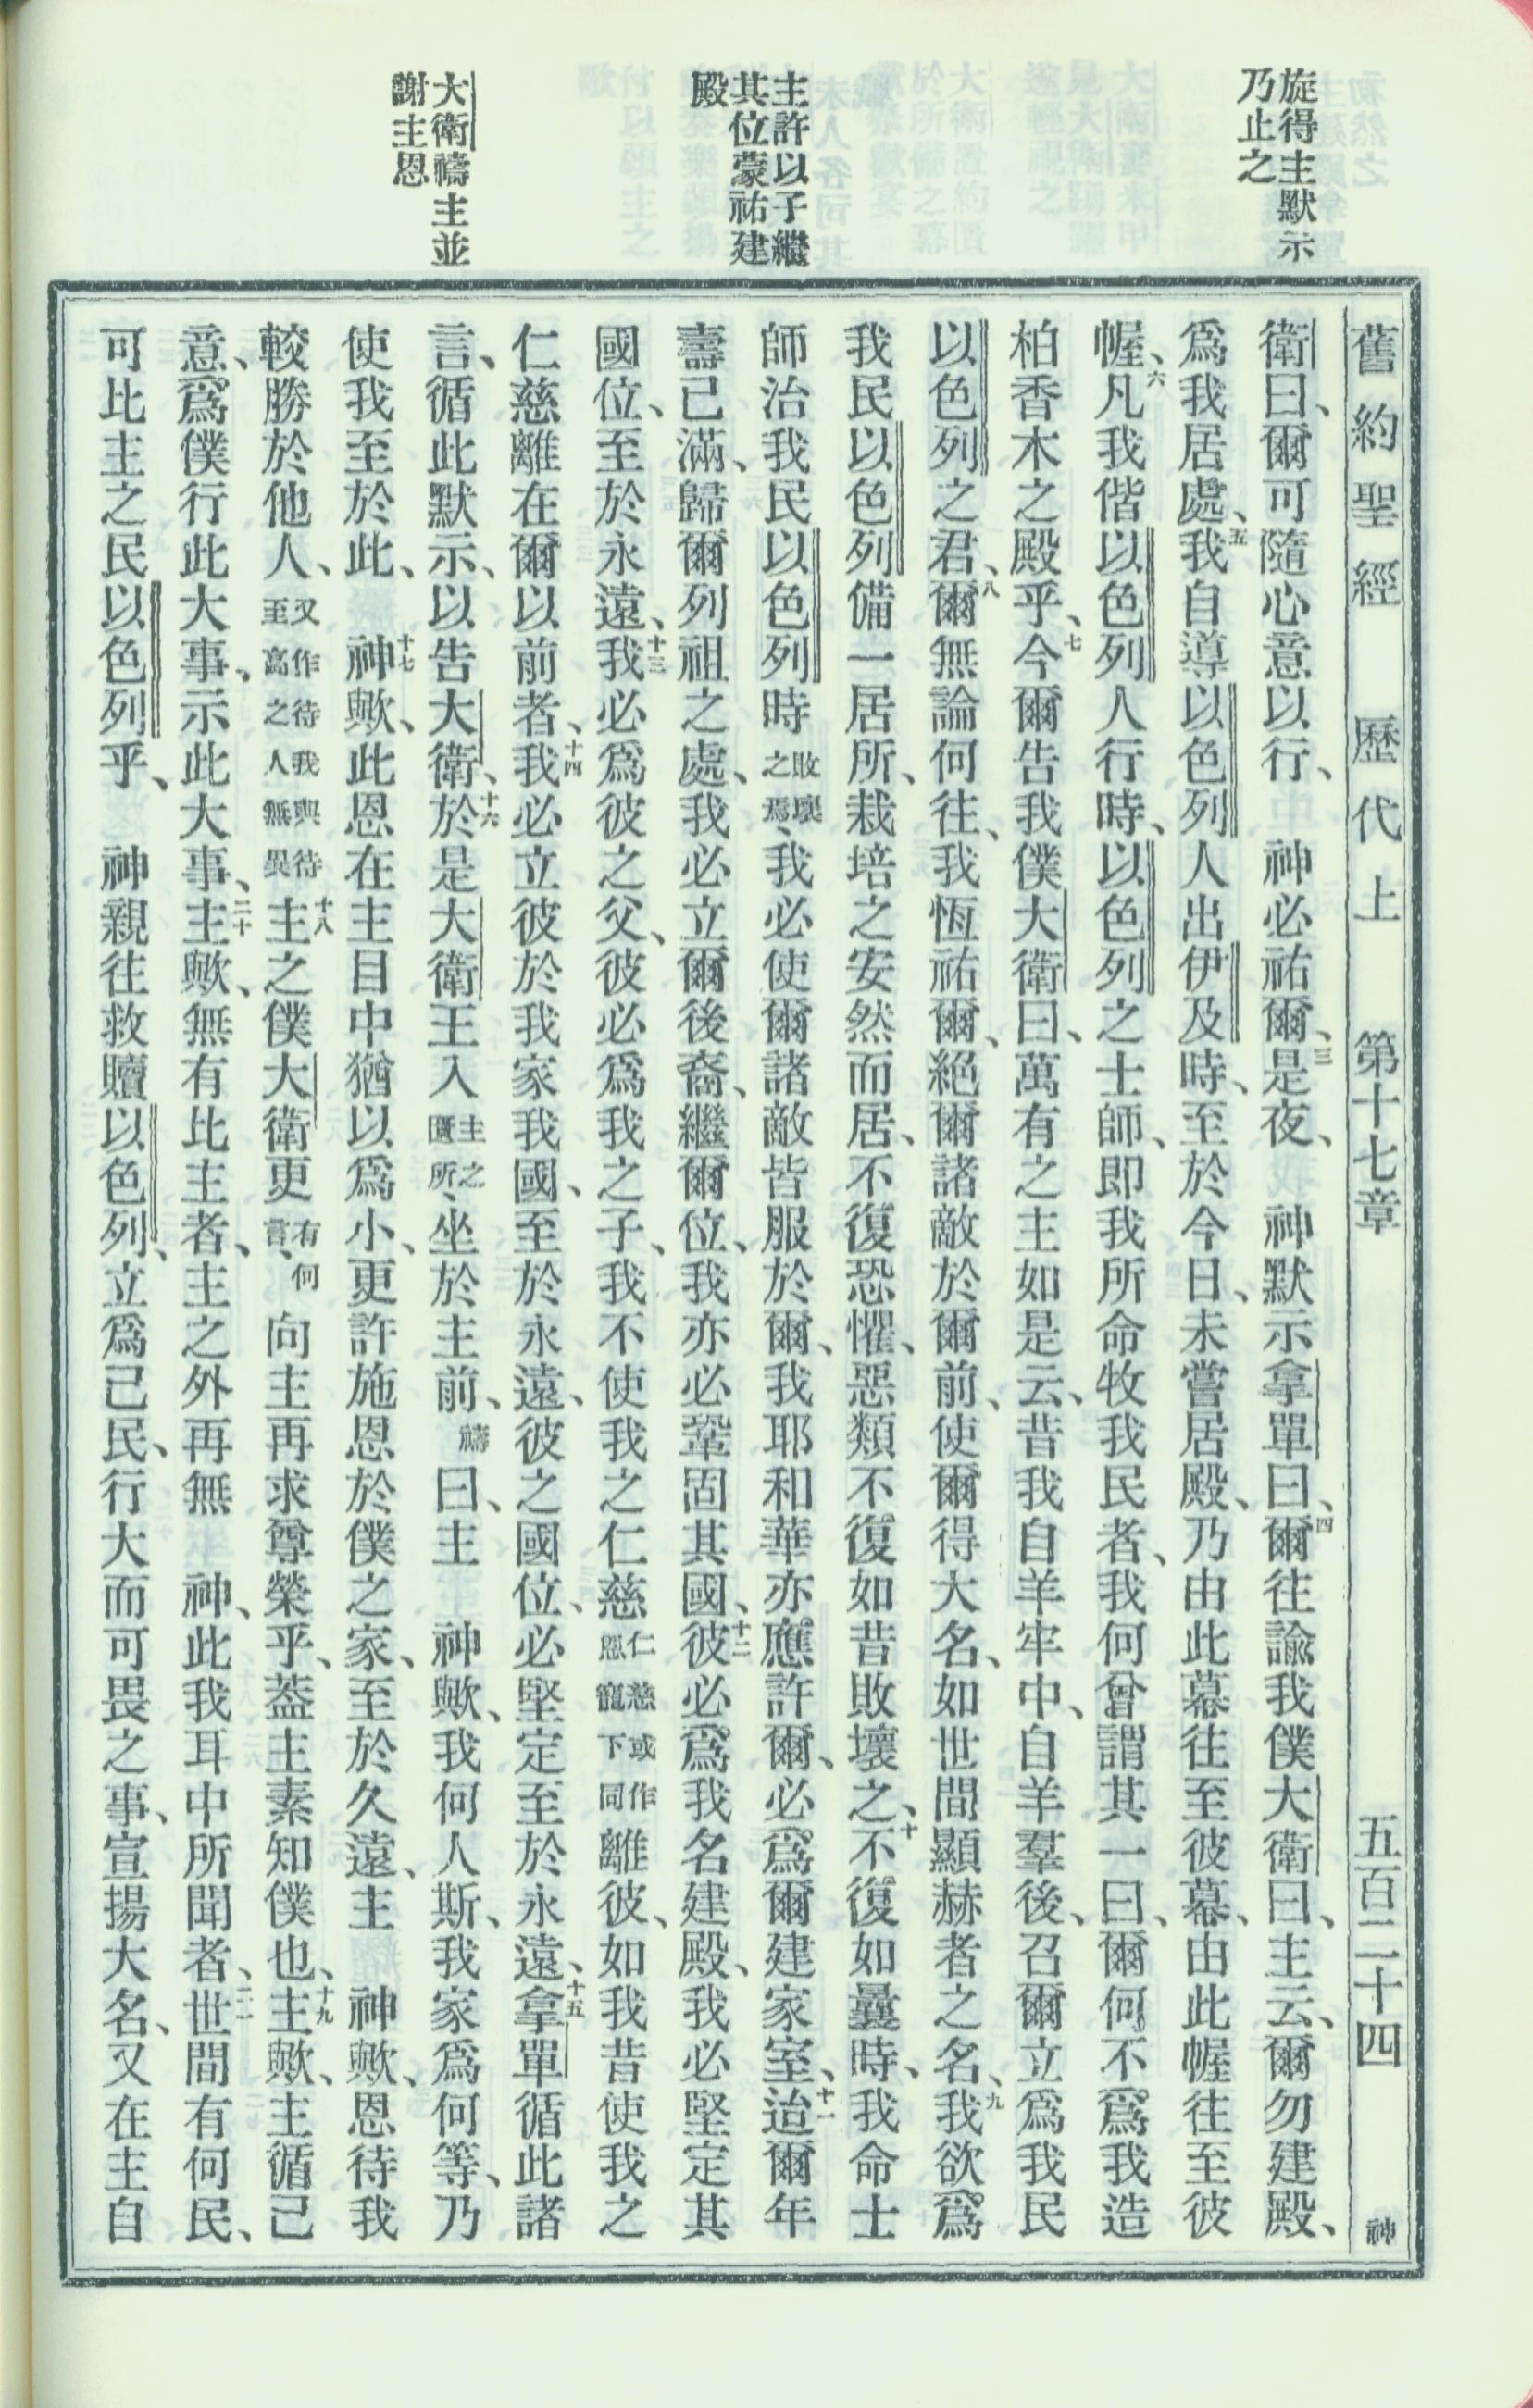 旋得主默示
乃止之
主許以子繼
其位蒙祐建
殿
大衛禱主並
謝主恩
舊約聖經 歷代上 第十七章 五百二十四 神
衛曰、爾可隨心意以行、 神必祐爾、三是夜、 神默示拿單曰、四爾往諭我僕大衛曰、主云、爾勿建殿、
爲我居處、五我自導以色列人出伊及時、至於今日、未嘗居殿、乃由此幕往至彼幕、由此幄往至彼
幄、六凡我偕以色列人行時、以色列之士師、卽我所命牧我民者、我何曾謂其一曰、爾何不爲我造
柏香木之殿乎、七今爾告我僕大衛曰、萬有之主如是云、昔我自羊牢中、自羊羣後、召爾立爲我民
以色列之君、八爾無論何往、我恆祐爾、絕爾諸敵於爾前、使爾得大名、如世間顯赫者之名、九我欲爲
我民以色列備一居所、栽培之安然而居、不復恐懼、惡類不復如昔敗壞之、十不復如曩時、我命士
師治我民以色列時敗壞之焉、我必使爾諸敵皆服於爾、我耶和華亦應許爾、必爲爾建家室、十一迨爾年
壽已滿、歸爾列祖之處、我必立爾後裔、繼爾位、我亦必鞏固其國、十二彼必爲我名建殿、我必堅定其
國位、至於永遠、十三我必爲彼之父、彼必爲我之子、我不使我之仁慈仁慈或作恩寵下同離彼、如我昔使我之
仁慈離在爾以前者、十四我必立彼於我家我國、至於永遠、彼之國位、必堅定至於永遠、十五拿單循此諸
言、循此默示、以告大衛、十六於是大衛王入主之匱所、坐於主前、禱曰、主 神歟、我何人斯、我家爲何等、乃
使我至於此、 十七神歟、此恩在主目中猶以爲小、更許施恩於僕之家、至於久遠、主 神歟、恩待我
較勝於他人、又作待我與待至高之人無異十八主之僕大衛更有何言、向主再求尊榮乎、葢主素知僕也、十九主歟、主循己
意、爲僕行此大事、示此大事、二十主歟、無有比主者、主之外再無 神、此我耳中所聞者、二一世間有何民、
可比主之民以色列乎、 神親往救贖以色列、立爲己民、行大而可畏之事、宣揚大名、又在主自